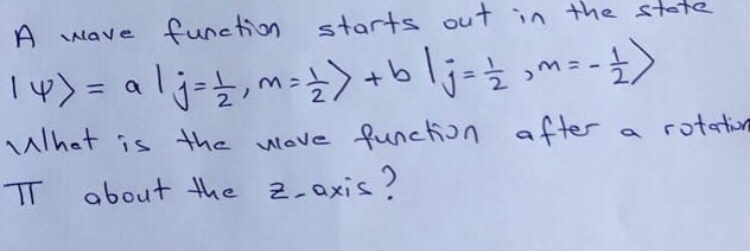 A wave function starts out in the state
|ψ⟩ = a |j=1/2, m=1/2⟩ + b |j=1/2, m=-1/2⟩
What is the wave function after a rotation
π about the z-axis?